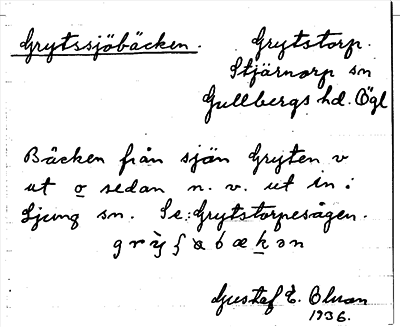 Grytssjöbäcken.
Grytstorp.
Stjärnorp sn
Gullbergs hd. Ögl
Bäcken från sjön Gryten v
ut o sedan n. v. ut in i
Ljung sn. Se: Grytstorpesågen.
Gustaf E. Bluan
1936.